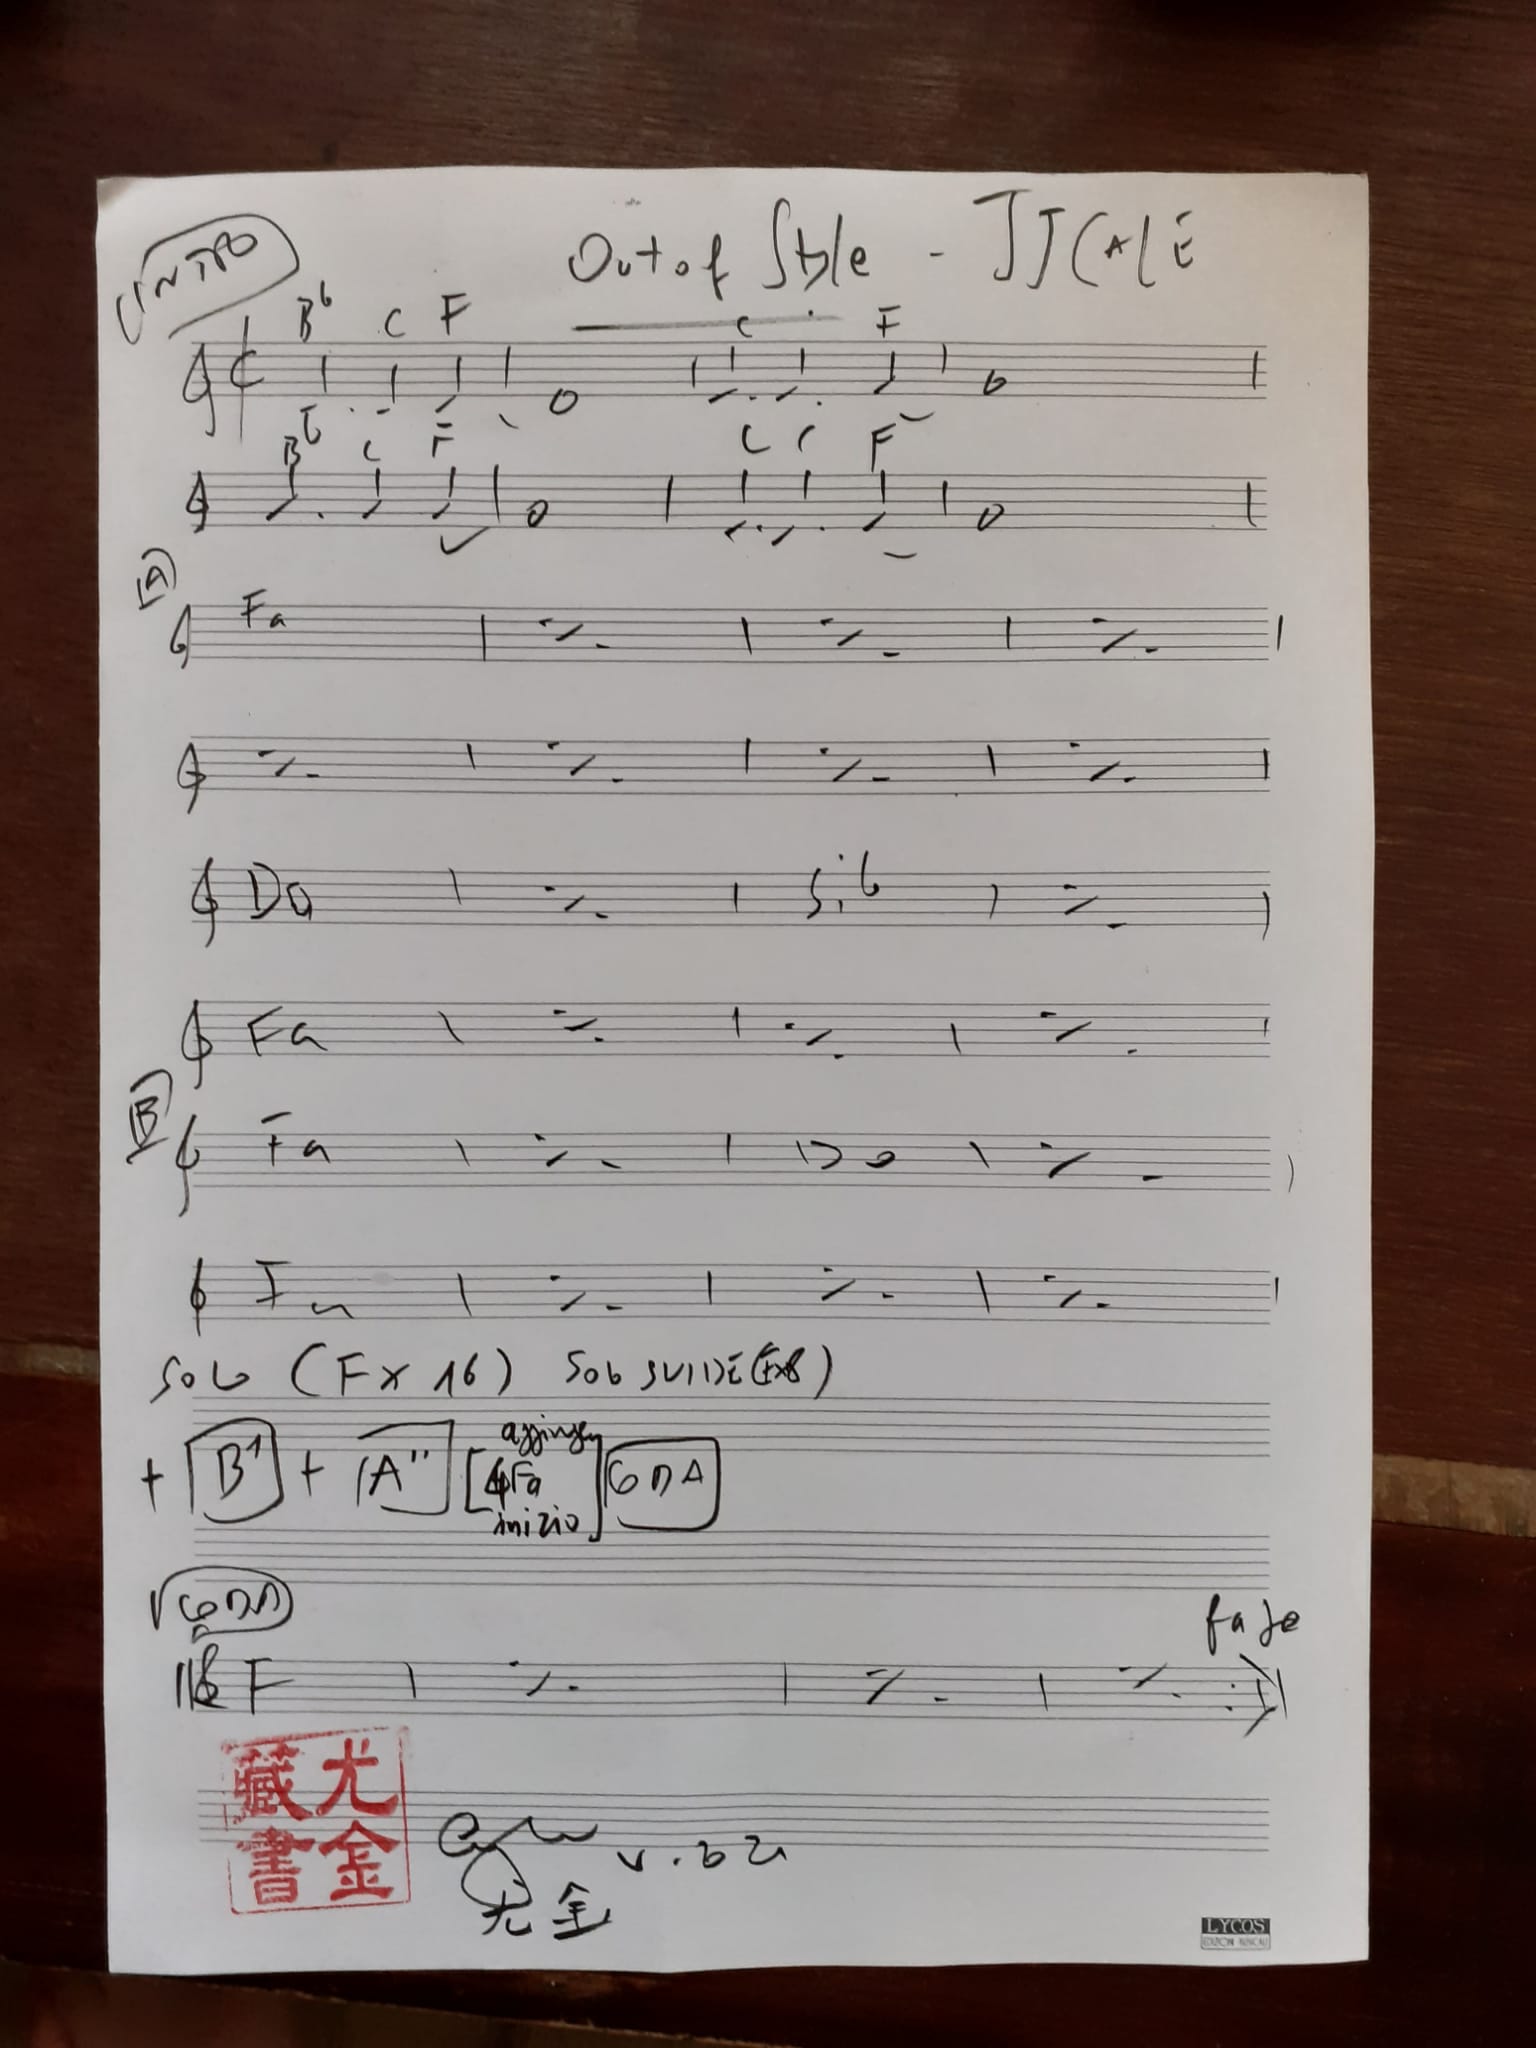 INTRO
Out of Style - JJ CALE
Bb C F C F
Bb C F C C F
[A]
Fa
Do Sib
Fa
[B]
Fa Do
Fa
SOLO (F x 16) SOLO SLIDE (Fx8)
+ B' + A'' [aggiungere 4 Fa inizio] CODA
CODA
fade
F
尤金
藏書
v. 02
尤金
LYCOS
EDIZIONI MUSICALI